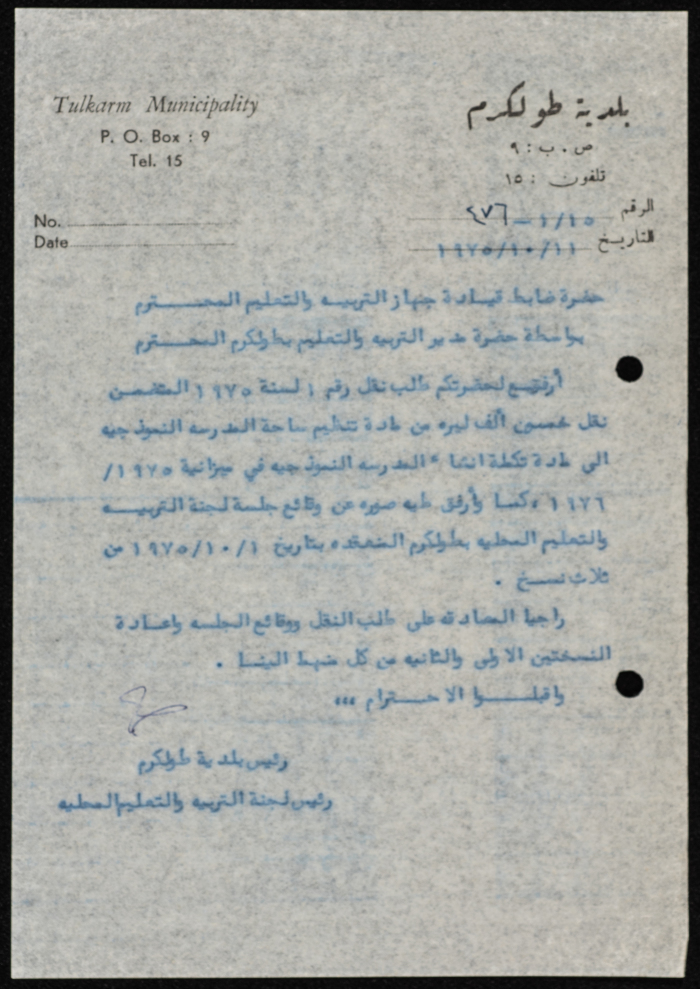 Tulkarm Municipality
P. O. Box : 9
Tel. 15
No.
Date
بلدية طولكرم
ص . ب : ٩
تلفون : ١٥
الرقم ١/١٥ – ٤٧٦
التاريخ ١٩٧٥/١٠/١١
حضرة ضابط قيادة جهاز التربيه والتعليم المحتـــرم
بواسطة حضرة مدير التربيه والتعليم بطولكرم المحـترم
أرفق لحضرتكم طلب نقل رقم ١ لسنة ١٩٧٥ المتضمن
نقل خمسين ألف ليره من مادة تنظيم ساحة المدرسه النموذجيه
الى مادة تكملة انشا ء المدرسه النموذجيه في ميزانية ١٩٧٥/
١٩٧٦ ، كما وأرفق طيه صوره عن وقائع جلسة لجنة التربيـــه
والتعليم المحليه بطولكرم المنعقده بتاريخ ١٩٧٥/١٠/١ من
ثلاث نســخ .
راجيا المصادقه على طلب النقل ووقائع الجلسه واعـادة
النسختين الاولى والثانيه من كل ضبط الينـا .
واقبلـــوا الاحـــترام ،،،
رئيس بلدية طولكرم
رئيس لجنة التربيه والتعليم المحليه